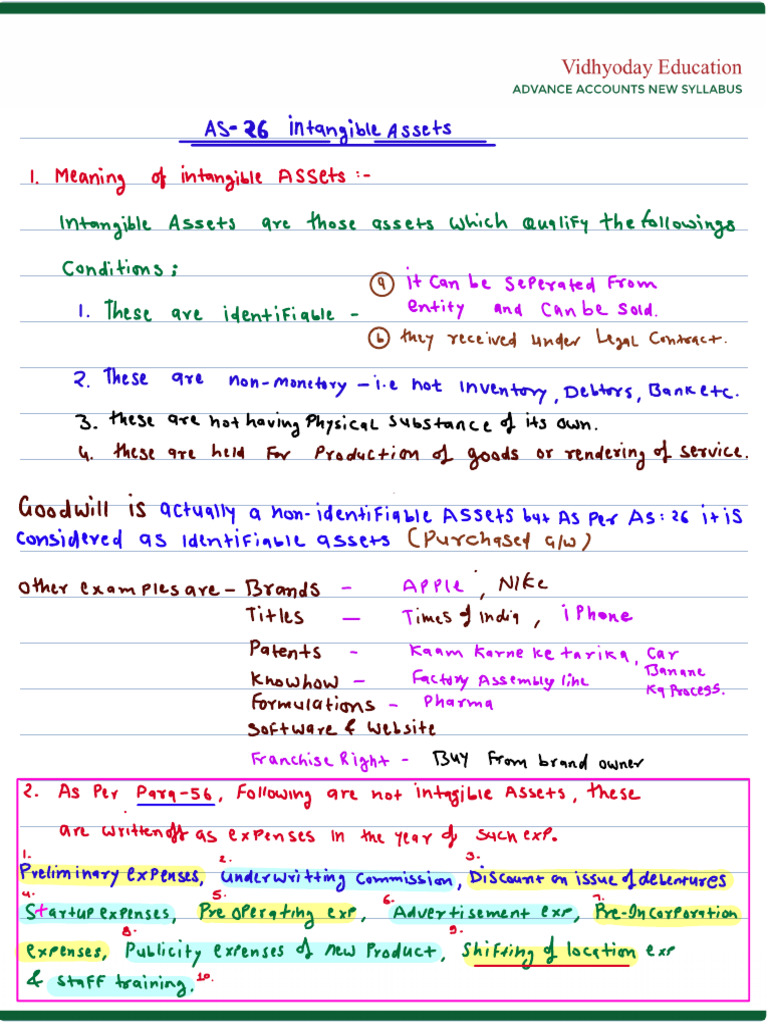 Vidhyoday Education
ADVANCE ACCOUNTS NEW SYLLABUS
AS-26 intangible Assets
1. Meaning of intangible Assets :-
Intangible Assets are those assets which Qualify the followings
Conditions;
1. These are identifiable -
a it Can be Seperated From
entity and Can be Sold.
b they received under Legal Contract.
2. These are non-monetory - i.e not Inventory, Debtors, Bank etc.
3. these are not having Physical substance of its own.
4. these are held For Production of goods or rendering of service.
Goodwill is actually a non-identifiable Assets but As Per As: 26 it is
considered as Identifiable assets (Purchased G/w)
other examples are - Brands - APPLE, NIKE
Titles - Times of India, iPhone
Patents - Kaam Karne ke tarika, Car
Banane
Ka Process.
Knowhow - Factory Assembly line
Formulations - Pharma
Software & Website
Franchise Right - Buy From brand owner
2. As Per Para-56, Following are not intagible Assets, these
are written off as expenses in the year of such exp.
1. Preliminary expenses, 2. Underwritting Commission, 3. Discount on issue of debentures
4. Startup expenses, 5. Pre operating exp, 6. Advertisement exp, 7. Pre-Incorporation
expenses, 8. Publicity expenses of new Product, 9. Shifting of location exp
& staff training. 10.